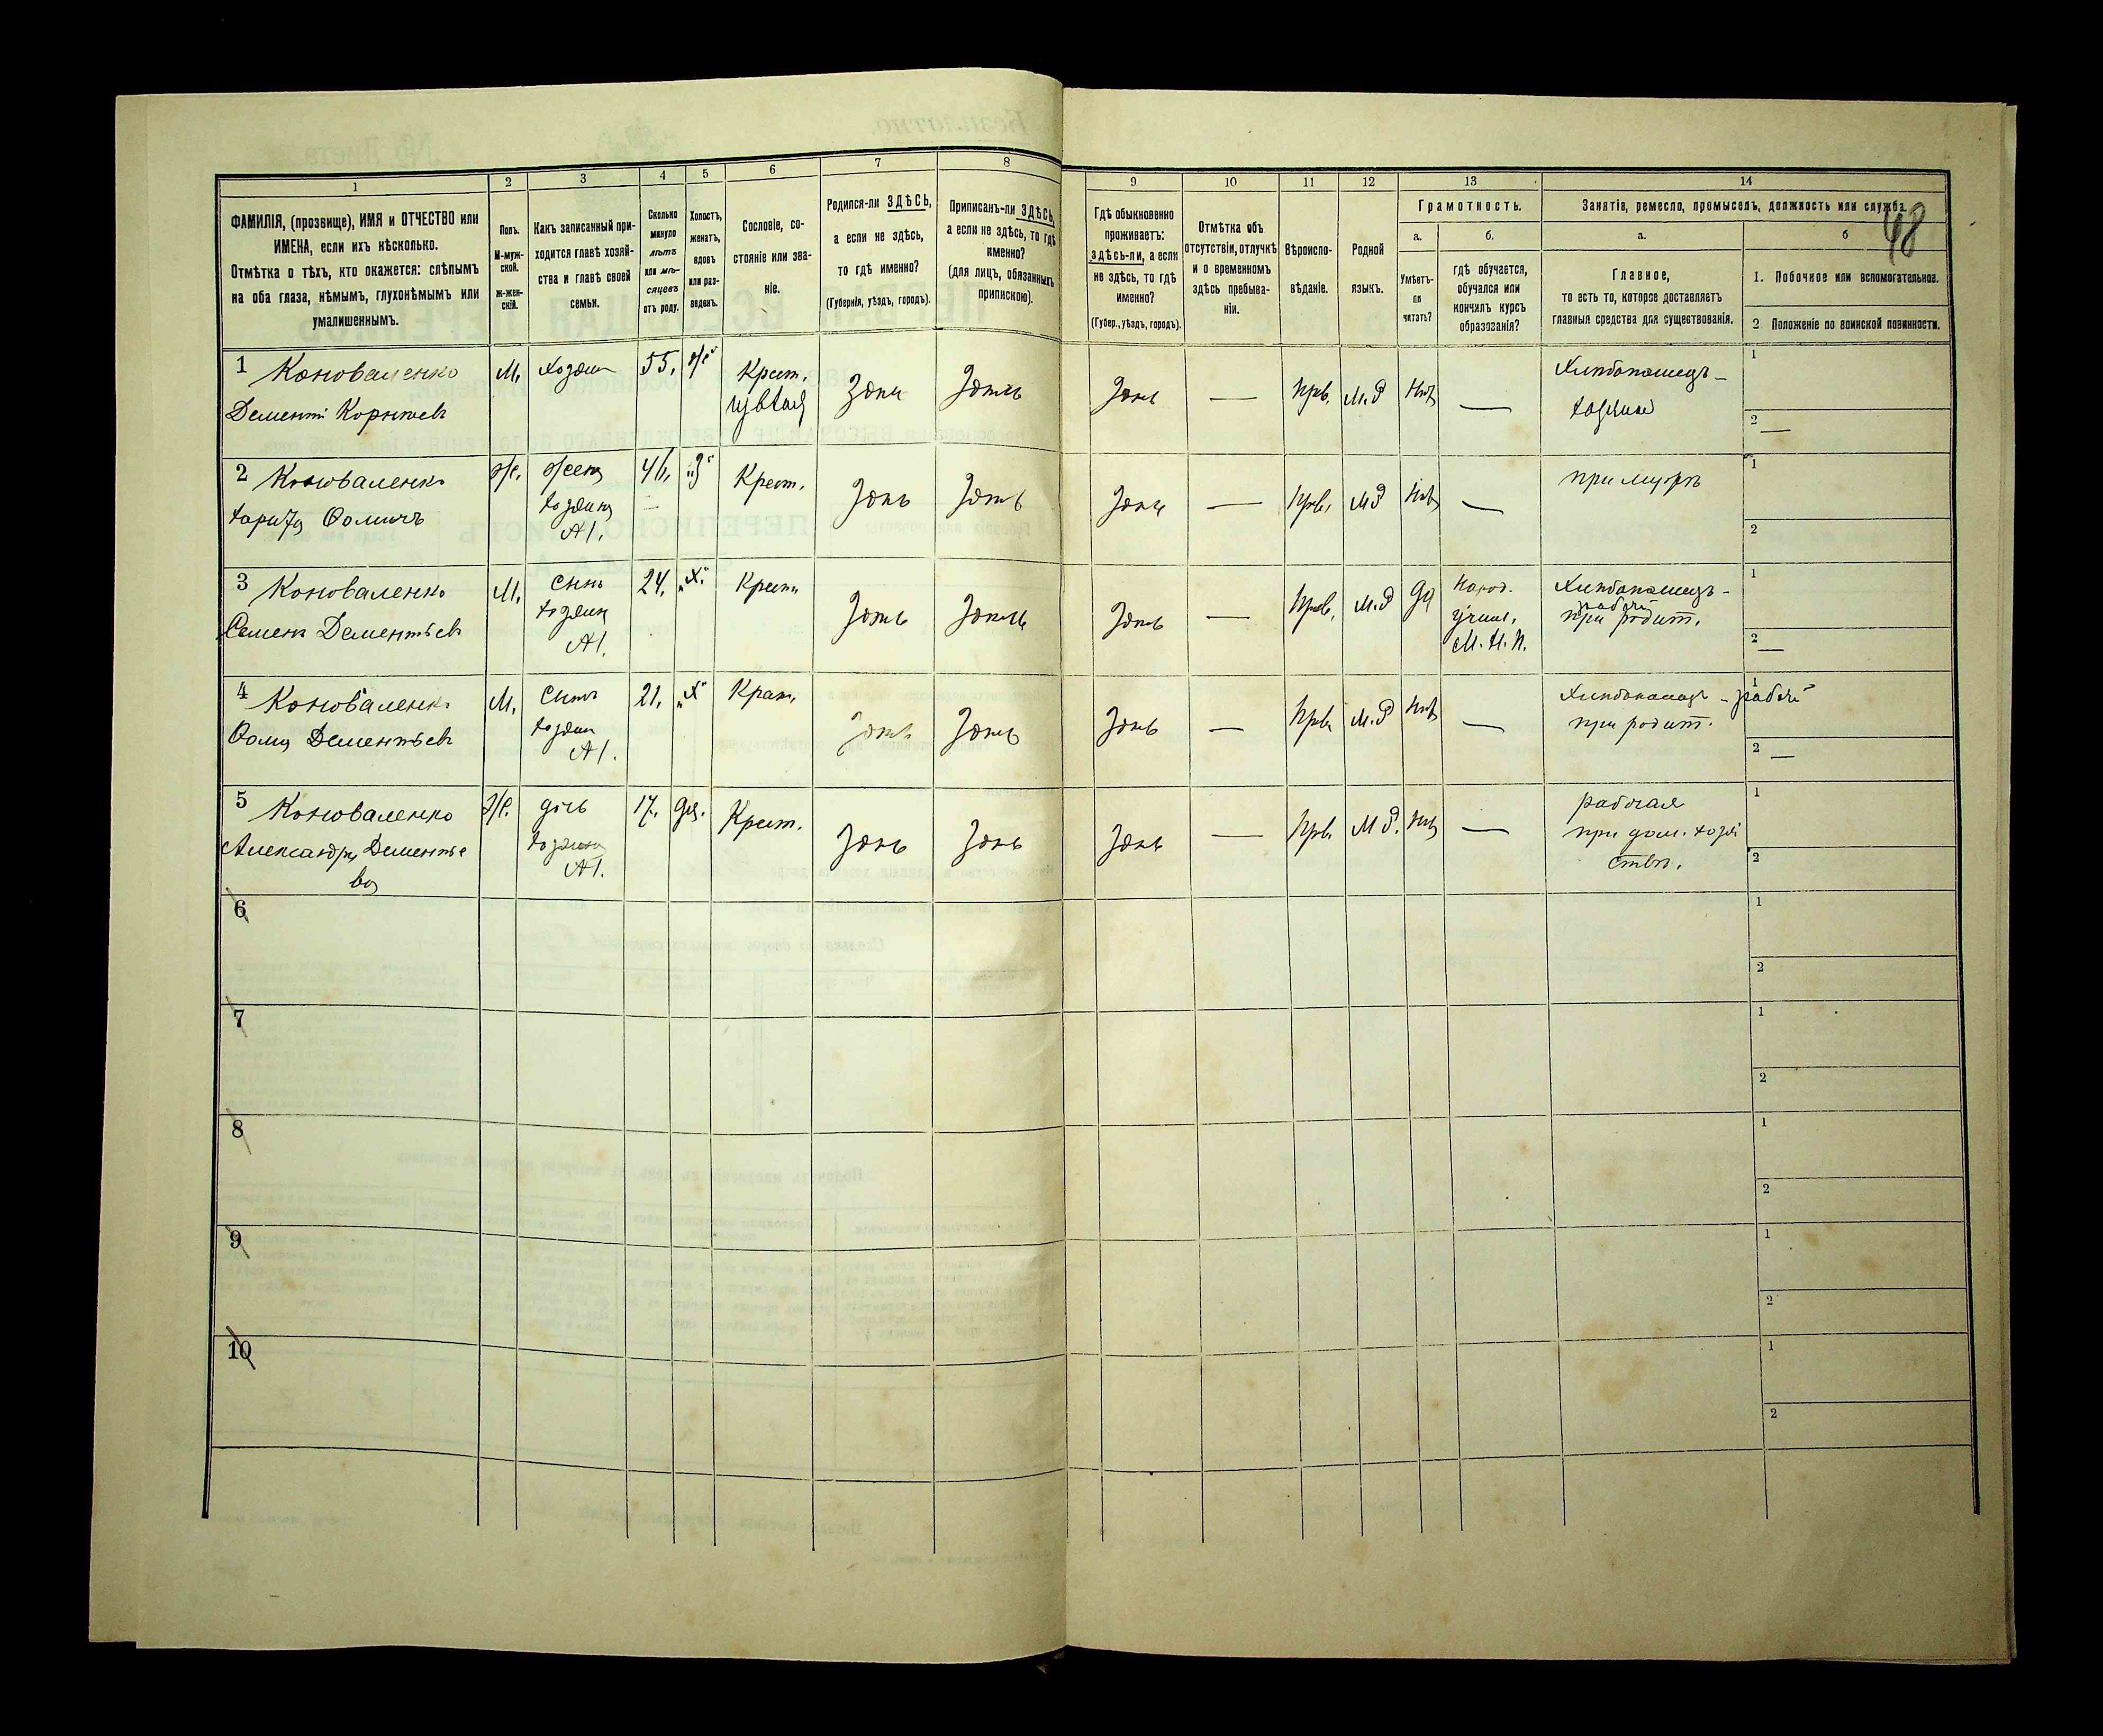 48
1 2 3 4 5 6 7 8 9 10 11 12 13 14
ФАМИЛІЯ, (прозвище), ИМЯ и ОТЧЕСТВО или
ИМЕНА, если ихъ нѣсколько.
Отмѣтка о тѣхъ, кто окажется: слѣпымъ
на оба глаза, нѣмымъ, глухонѣмымъ или
умалишеннымъ.
Полъ.
М-муж-
ской.
Ж-жен-
скій.
Какъ записанный при-
ходится главѣ хозяй-
ства и главѣ своей
семьи.
Сколько
минуло
лѣтъ
или мѣ-
сяцевъ
отъ роду.
Холостъ,
женатъ,
вдовъ
или раз-
веденъ.
Сословіе, со-
стояніе или зва-
ніе.
Родился-ли ЗДѢСЬ,
а если не здѣсь,
то гдѣ именно?
(Губернія, уѣздъ, городъ).
Приписанъ-ли ЗДѢСЬ,
а если не здѣсь, то гдѣ
именно?
(для лицъ, обязанныхъ
припискою).
Гдѣ обыкновенно
проживаетъ:
здѣсь-ли, а если
не здѣсь, то гдѣ
именно?
(Губер., уѣздъ, городъ).
Отмѣтка объ
отсутствіи, отлучкѣ
и о временномъ
здѣсь пребыва-
ніи.
Вѣроиспо-
вѣданіе.
Родной
языкъ.
Грамотность.
а.
Умѣетъ-
ли
читать?
б.
гдѣ обучается,
обучался или
кончилъ курсъ
образованія?
Занятія, ремесло, промыселъ, должность или служба.
а.
Главное,
то есть то, которое доставляетъ
главныя средства для существованія.
б
1. Побочное или вспомогательное.
2 Положеніе по воинской повинности.
1 Коноваленко
Дементі Корнѣевъ
М. хозяин 55. Крест. Здѣсь Здѣсь Здѣсь — Прв. М.Р Нѣт —
Хлѣбопашецъ -
хозяин
1
2 —
2 Коноваленко
Ж. жена
хозяина
№1.
46. "З" Крест. Здѣсь Здѣсь Здѣсь — Прв. МР Нѣт —
при мужѣ
1
2
3 Коноваленко
Семенъ Дементьевъ
М. сынъ
хозяина
№1.
24. "Х" Крест. Здѣсь Здѣсь Здѣсь — Прв. М.Р Да
Народ.
учил.
М.Н.П.
Хлѣбопашецъ -
рабочій
при родит.
1
2 —
4 Коноваленко
Фома Дементьевъ
М. Сынъ
хозяина
№1.
21. "Х" Крест. Здѣсь Здѣсь Здѣсь — Прв. М.Р Нѣт —
Хлѣбопашецъ - рабочій
при родит.
1
2 —
5 Коноваленко
Александра Дементье
ва
Ж. дочь
хозяина
№1.
17. Дѣв. Крест. Здѣсь Здѣсь Здѣсь — Прв. М Р. Нѣт —
рабочая
при дом. хозяй
ствѣ.
1
2
6
1
2
7
1
2
8
1
2
9
1
2
10
1
2